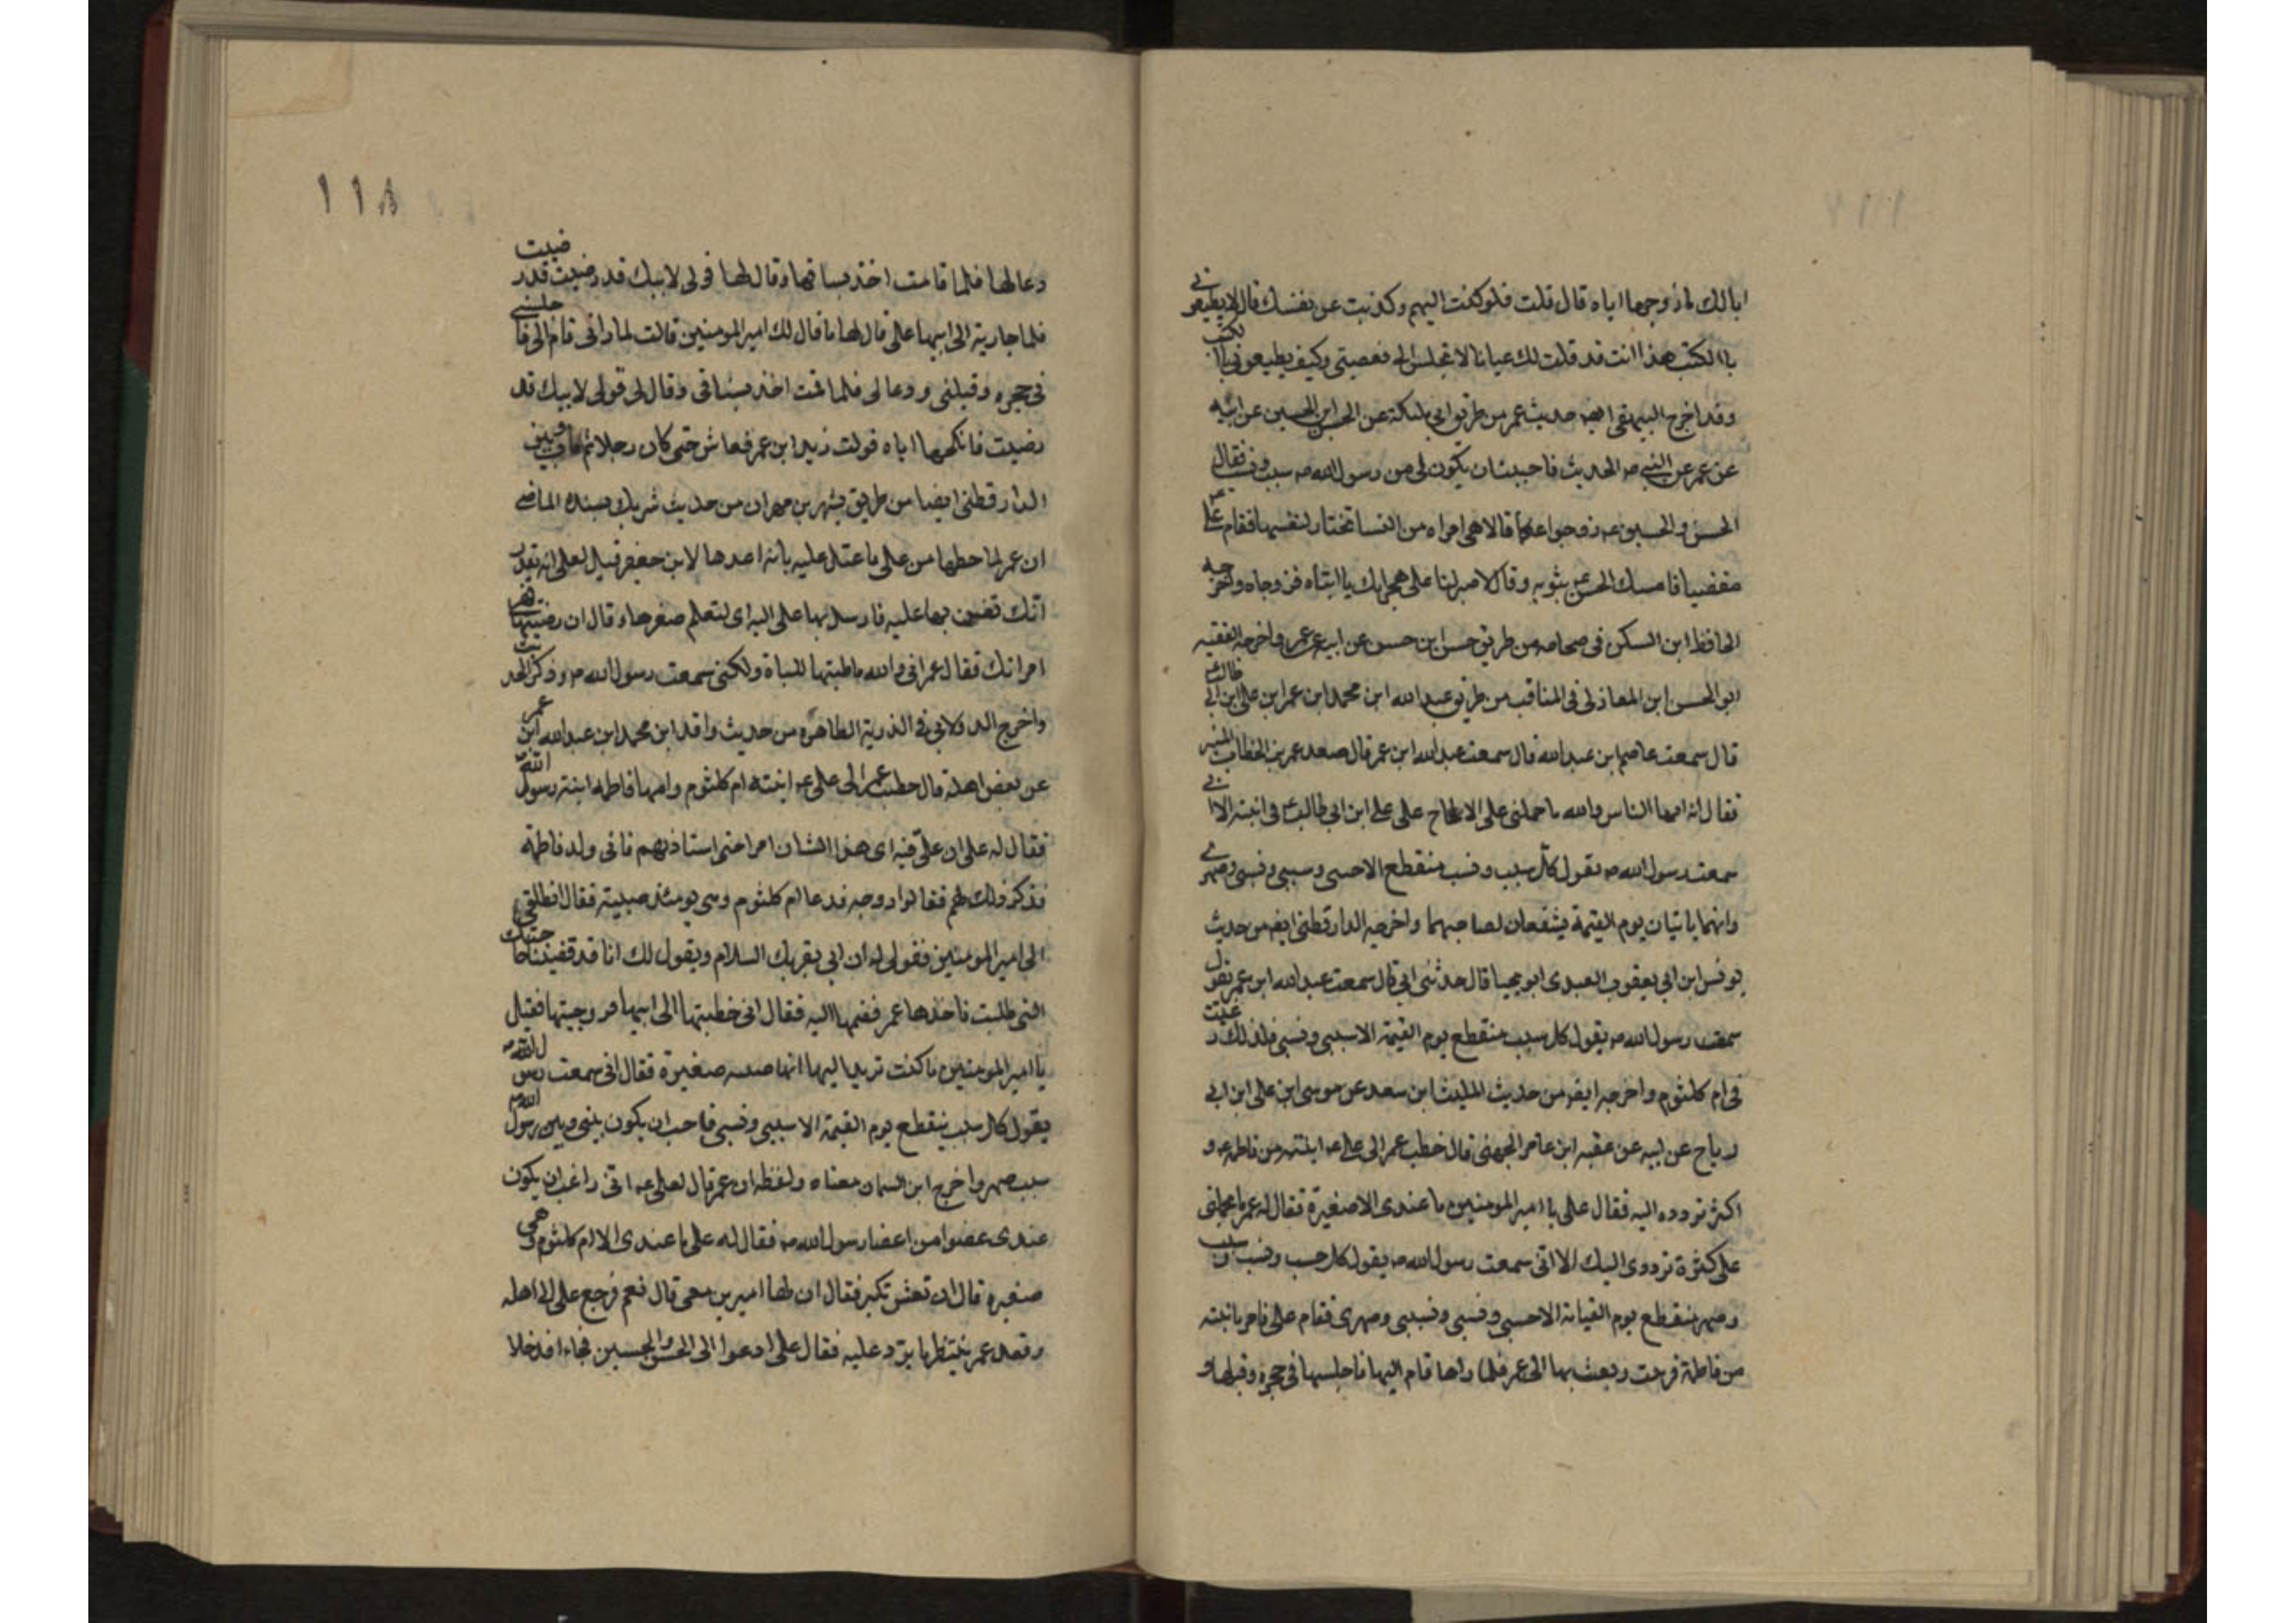 ابالك لم زوجها اياه قال قلت فلو كنت اليهم وكذبت عن نفسك قال لا يطيعوني
هذا انت قد قلت لك عيانا لا تجلس الي فعصيتي وكيف يطيعوني
وقد اخرج البيهقي ايضه حديث عمر من طريق ابي مليكة عن الحسن ابن الحسين عن ابيه
عن عمر عن النبي صه الحديث فاحببت ان يكون لي من رسول الله صه سبب ونسب فقال
الحسن والحسين عه زوجوا عمكما قالا هي امراه من النسا تختار لنفسها فقام علي
مغضبا فامسك الحسن بثوبه وقال لا صبر لنا على هجرانك يا ابتاه فزوجاه واخرجه
الحافظ ابن السكن في صحاحه من طريق حسن ابن حسن عن ابيه عن عمر واخرجه الفقيه
ابو الحسن ابن المغازلي في المناقب من طريق عبد الله ابن محمد ابن عمر ابن علي ابن ابي طالب
قال سمعت عاصم ابن عبد الله قال سمعت عبد الله ابن عمر قال صعد عمر بن الخطاب المنبر
فقال ايها الناس والله ما حملني على الالحاح على علي ابن ابي طالب في ابنته الا اني
سمعت رسول الله صه يقول كل سبب ونسب منقطع الا حسبي وسببي ونسبي وصهري
وانهما ياتيان يوم القيمة يشفعان لصاحبهما واخرجه الدارقطني ايضه من حديث
يونس ابن ابي يعقوب العبدي ابو يحيا قال حدثني ابي قال سمعت عبد الله ابن عمر يقول
سمعت رسول الله صه يقول كل سبب منقطع يوم القيمة الا سببي ونسبي فلذلك رغبت
في ام كلثوم واخرجه ايضه من حديث الليث ابن سعد عن موسى ابن علي ابن ابي
رباح عن ابيه عن عقبه ابن عامر الجهني قال خطب عمر الى علي عه ابنته من فاطمه عه و
اكثر تردده اليه فقال علي يا امير المومنين ما عندي الا صغيرة فقال له عمر ما حملني
على كثرة ترددي اليك الا اني سمعت رسول الله صه يقول كل حسب ونسب وسبب
وصهر منقطع يوم القيامة الا حسبي ونسبي وسببي وصهري فقام علي فامر بابنته
من فاطمة فزينت وبعث بها الى عمر فلما راها قام اليها فاجلسها في حجره وقبلها و
١١٨
دعا لها فلما قامت اخذ بساقها وقال لها قولي لابيك قد رضيت قد رضيت
فلما جارية الى ابيها علي قال لها ما قال لك امير المومنين قالت لما راني قام الي فاجلسني
في حجره وقبلني ودعا لي فلما قمت اخذ بساقي وقال لي قولي لابيك قد
رضيت فانكحها اياه فولدت زيد ابن عمر فعاش حتى كان رجلا ثم مات
الدارقطني ايضا من طريق بشر بن مهران من حديث شريك بسنده الماضي
ان عمر لما خطبها من علي ما عتل عليه بانه اعدها لابن جعفر فقيل لعلي انه يقدر
انك تضن بها عليه فارسل بها علي اليه اي لتعلم صغرها وقال ان رضيتها فهي
امراتك فقال عمر اني والله ما طلبتها للباة ولكني سمعت رسول الله صه وذكر الحديث
واخرج الدولابي في الذرية الطاهرة من حديث واقد ابن محمد ابن عبد الله ابن عمر
عن بعض اهله قال خطب عمر الى علي عه ابنته ام كلثوم وامها فاطمه ابنة رسول الله
فقال له علي ان علي فيه اي هذا الشان امرا حتى استاذنهم فاتى ولد فاطمة
فذكر ذلك لهم فقالوا زوجه فدعا ام كلثوم وهي يومئذ صبية فقال انطلقي
الى امير المومنين فقولي له ان ابي يقريك السلام ويقول لك انا قد قضينا حاجتك
التي طلبت فاخذها عمر فضمها اليه فقال اني خطبتها الى ابيها فزوجنيها فقيل
يا امير المومنين ما كنت تريد اليها انها صبيه صغيرة فقال اني سمعت رسول الله صه
يقول كل سبب ينقطع يوم القيمة الا سببي ونسبي فاحب ان يكون بيني وبين رسول الله
سبب صهر واخرج ابن السمان معناه ولفظه ان عمر قال لعلي عه اني راغب ان يكون
عندي عضوا من اعضا رسول الله صه فقال له علي ما عندي الا ام كلثوم وهي
صغيرة قال ان تعش تكبر فقال ان لها اميرين معي قال نعم فرجع علي الى اهله
وقعد عمر ينتظر ما يرد عليه فقال علي ادعوا الي الحسن والحسين فجاءا فدخلا